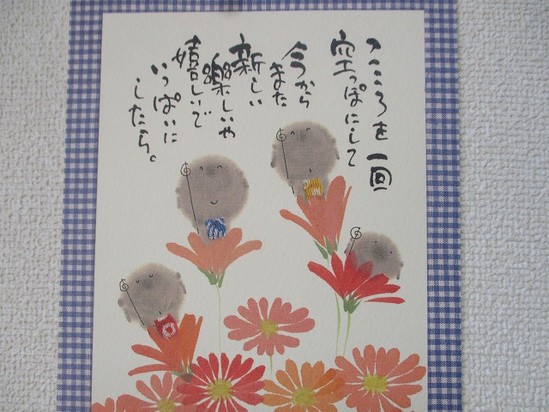 こころを一回
空っぽにして
今から
また
新しい
楽しいや
嬉しいで
いっぱいに
したら。